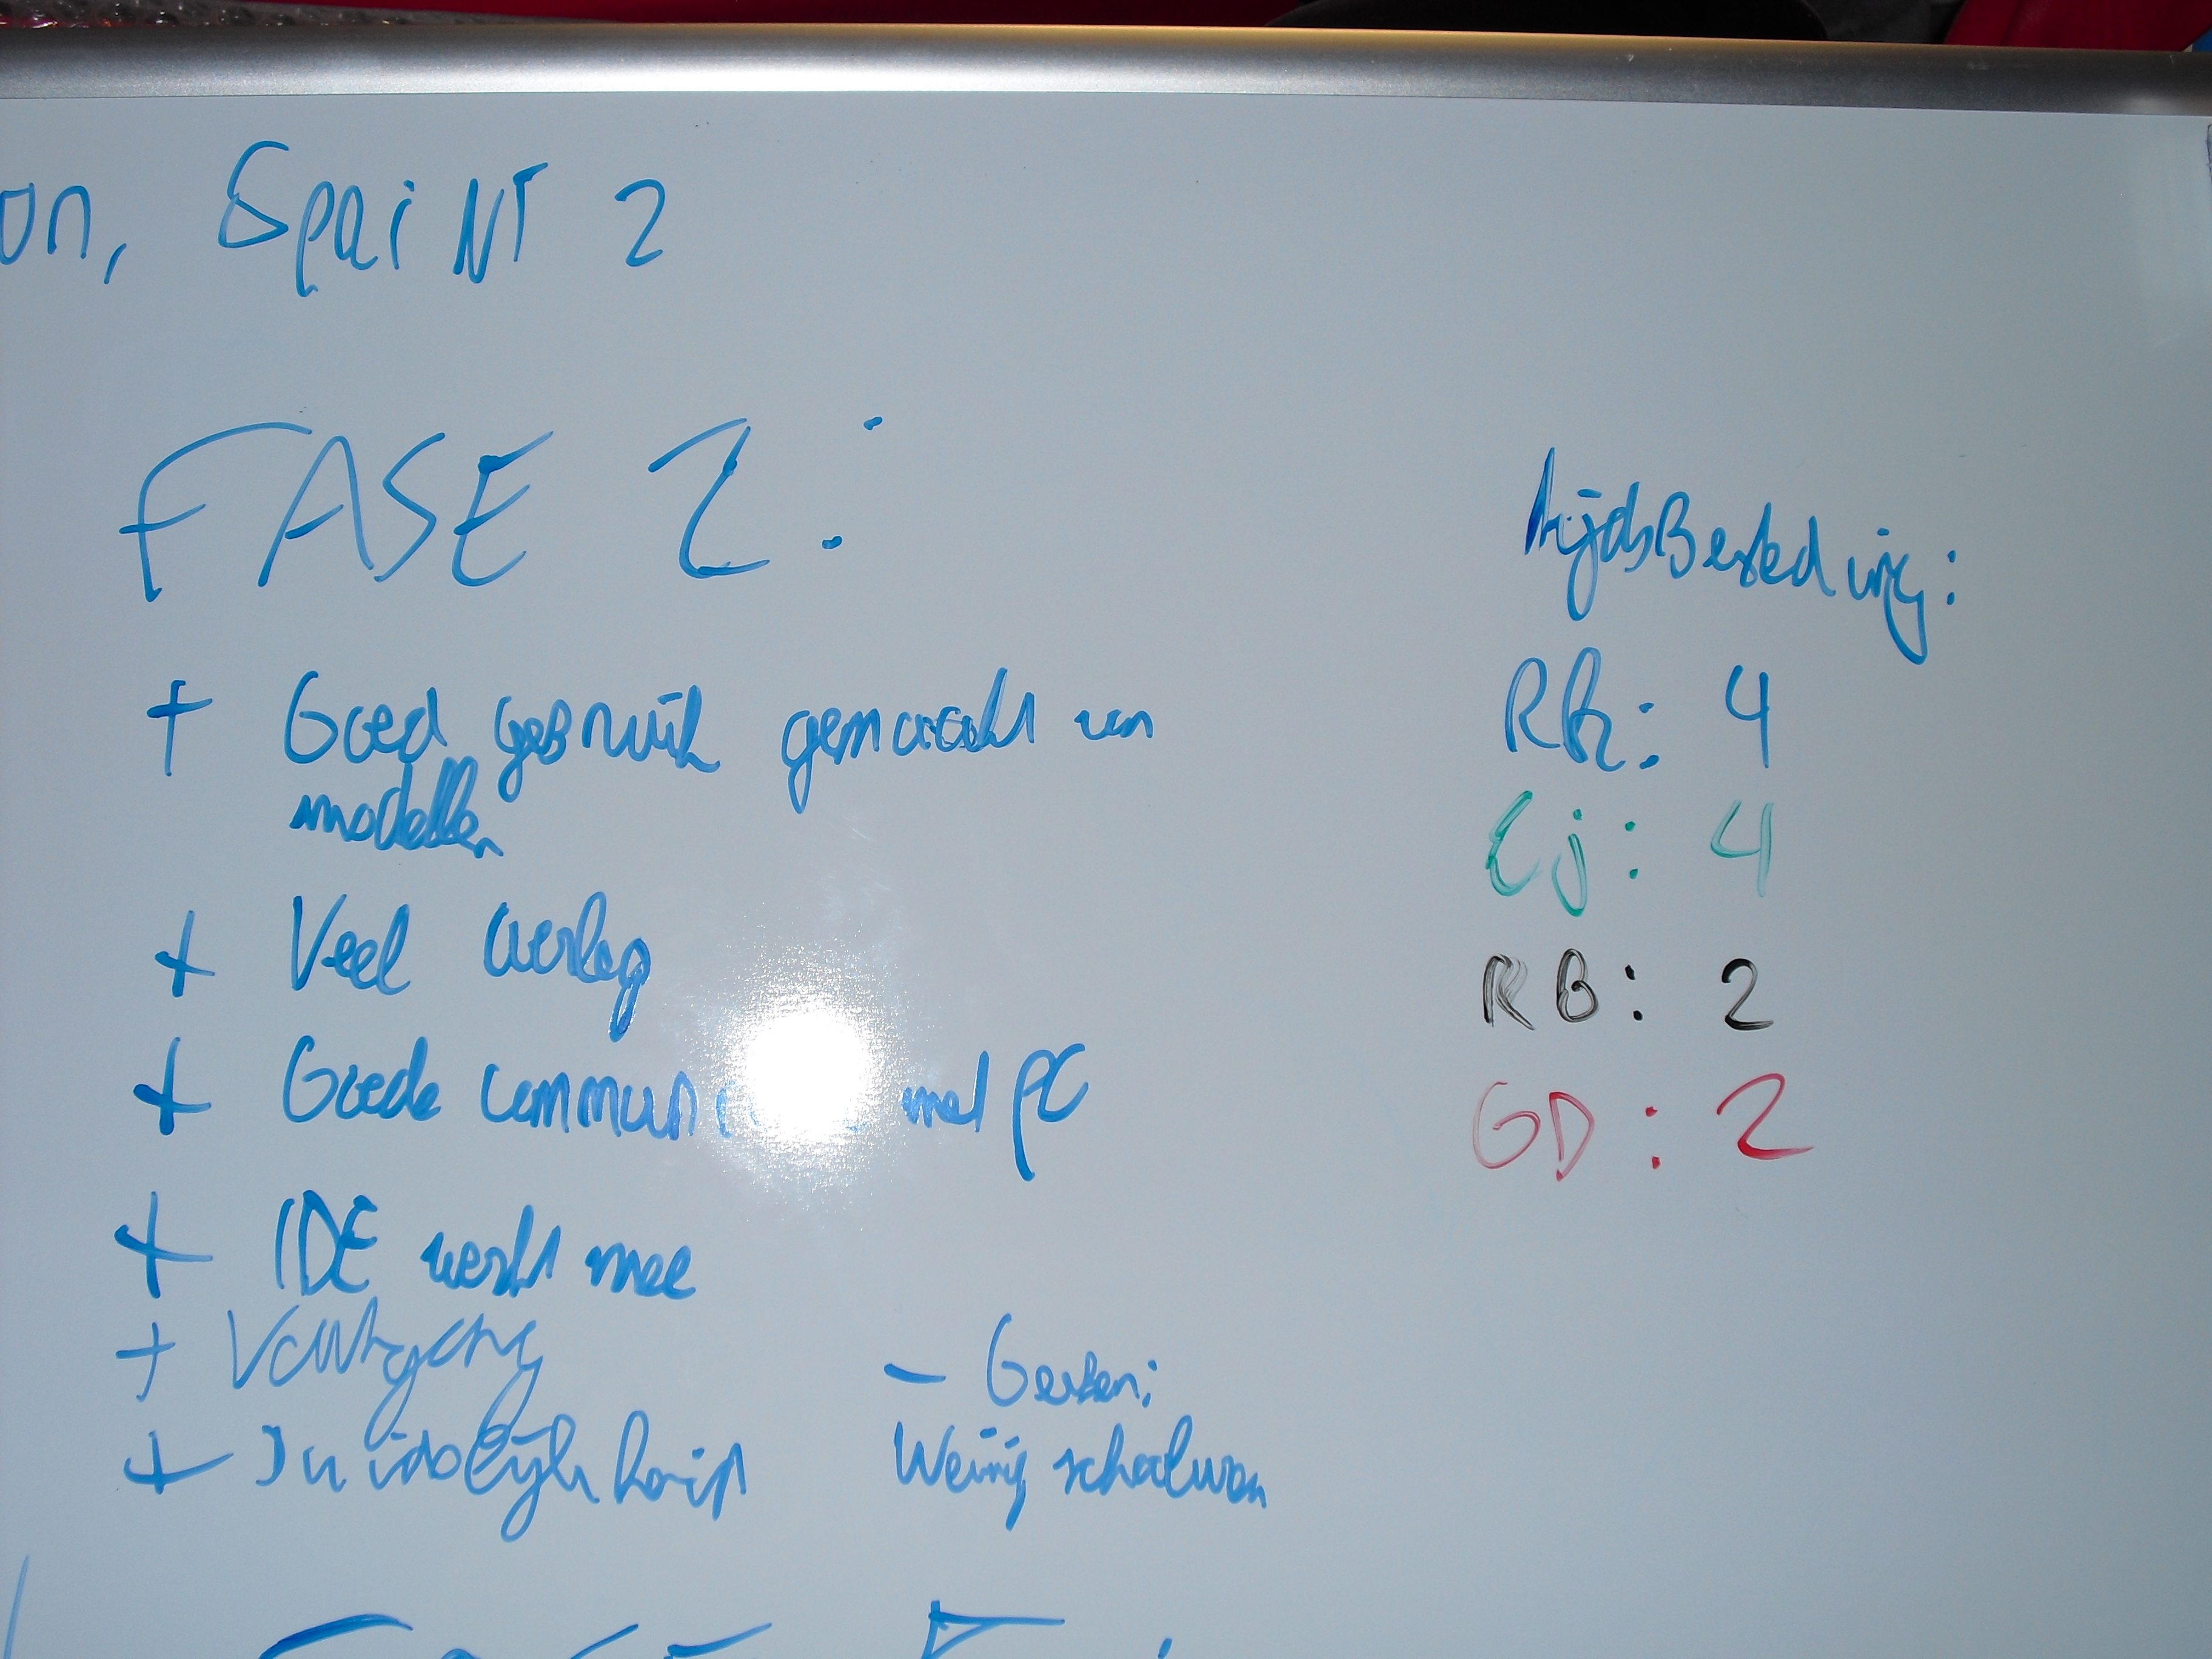 on, Sprint 2
FASE 2:
+ Goed gebruik gemaakt van
modellen
+ Veel overleg
+ Goede met PC
+ IDE werkt mee
+ Voortgang
+ Duidelijkheid
- Gesten:
Weinig schalwen
tijdsBesteding:
RK: 4
Ej: 4
RB: 2
GD: 2